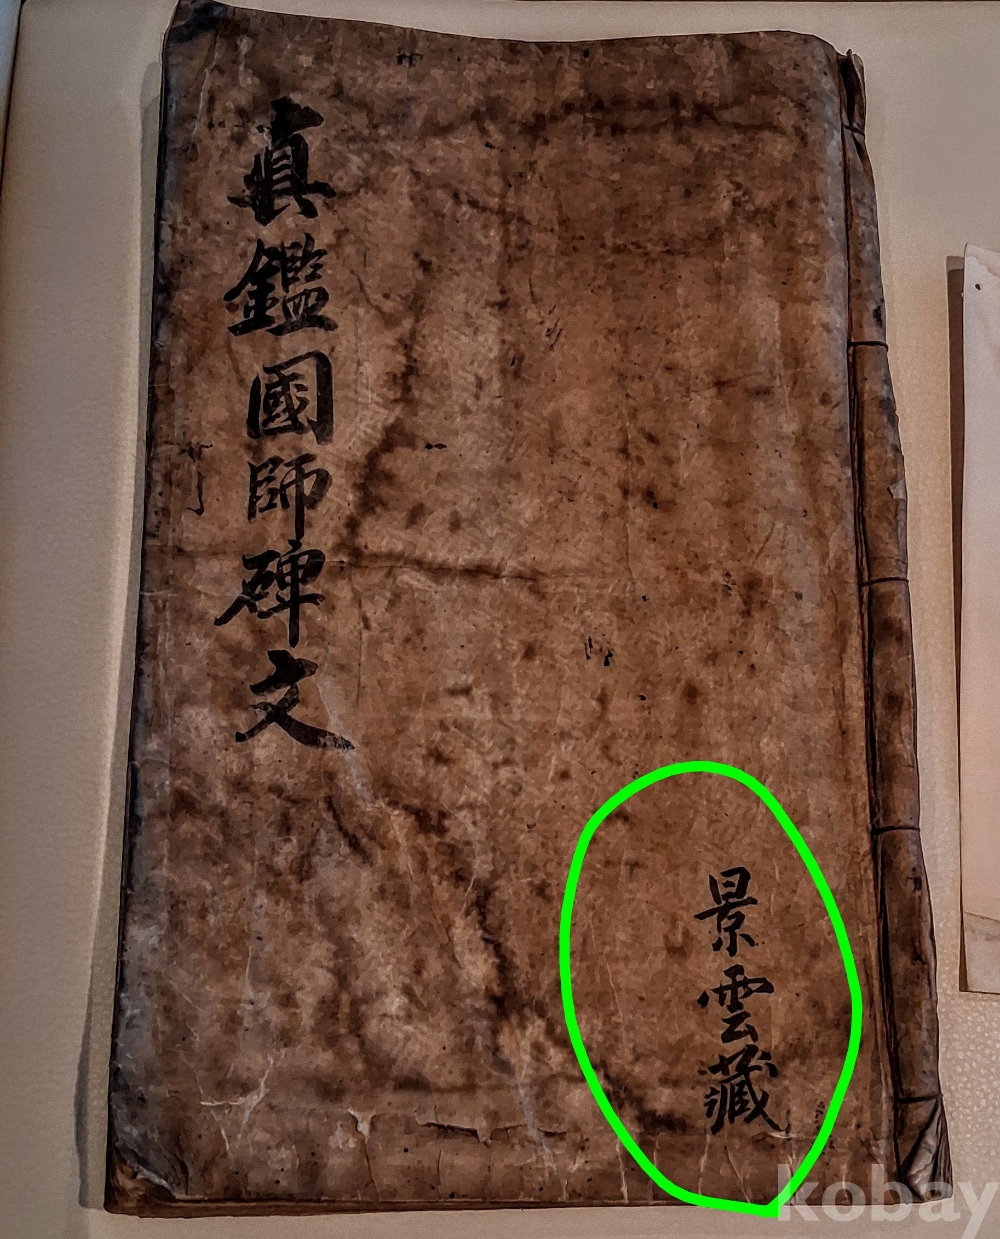 眞鑑國師碑文
景雲藏
kobay